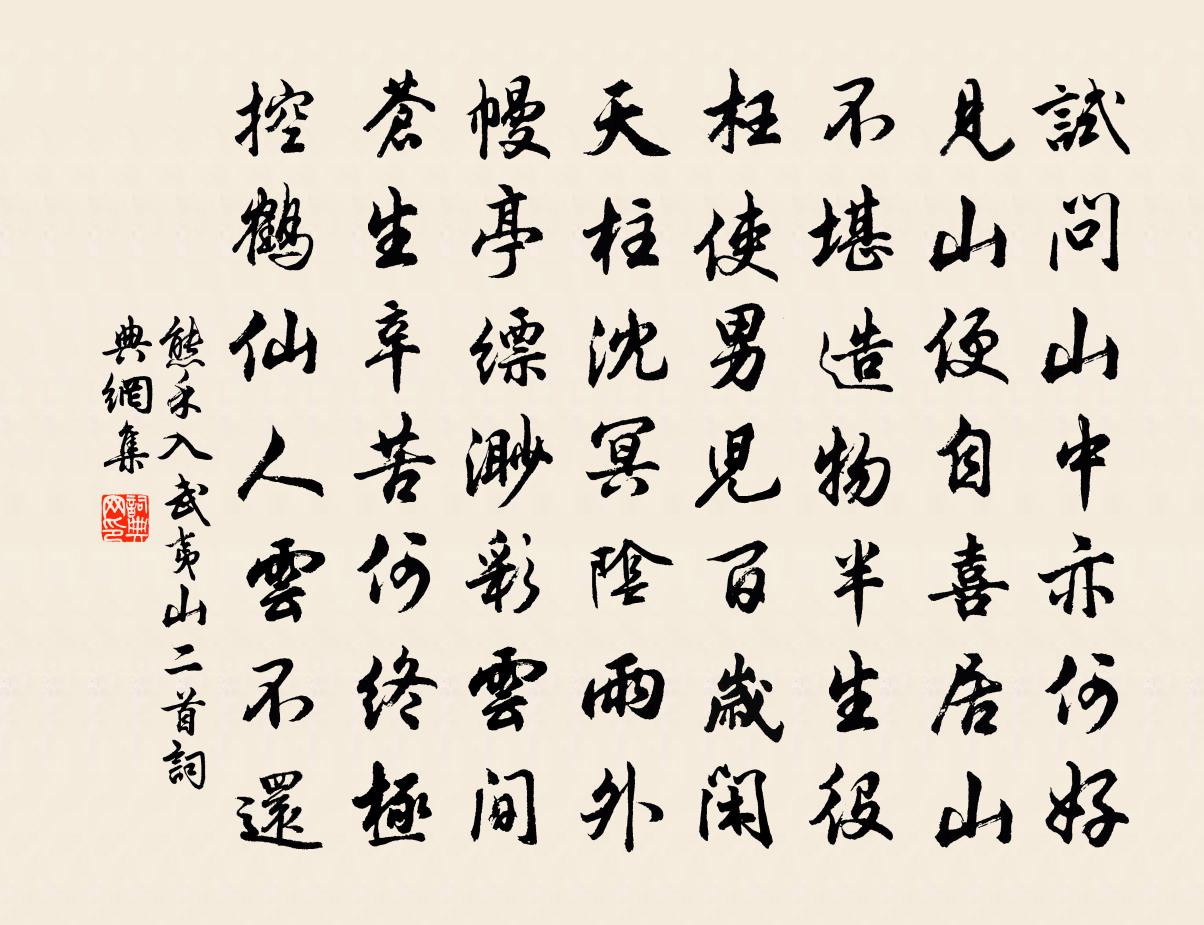 試問山中亦何好
見山便自喜居山
不堪造物半生役
枉使男児百歳閑
天柱沈冥陰雨外
幔亭縹渺彩雲間
蒼生辛苦何終極
控鶴仙人雲不還
熊禾入武夷山二首詞
典網集
詞典
网印